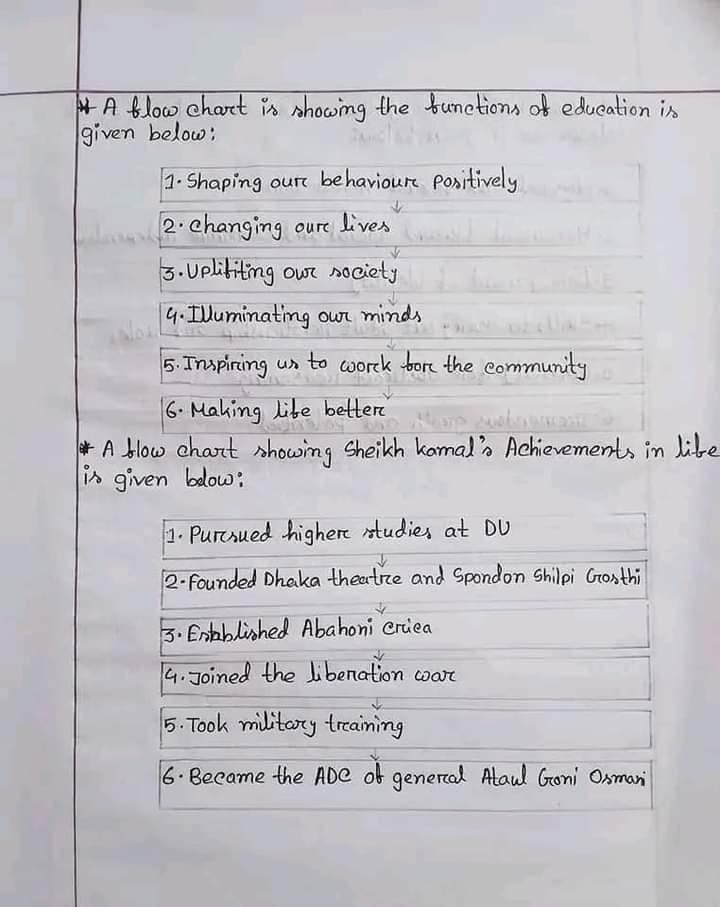 * A flow chart is showing the functions of education is
given below:
1. Shaping our behaviour positively
2. Changing our lives
3. Uplifiting our society
4. Illuminating our minds
5. Inspiring us to work for the community
6. Making life better
* A flow chart showing Sheikh kamal's Achievements in life
is given below:
1. Pursued higher studies at DU
2. Founded Dhaka theatre and Spondon Shilpi Grosthi
3. Established Abahoni Criea
4. Joined the liberation war
5. Took military training
6. Became the ADC of general Ataul Goni Osmani